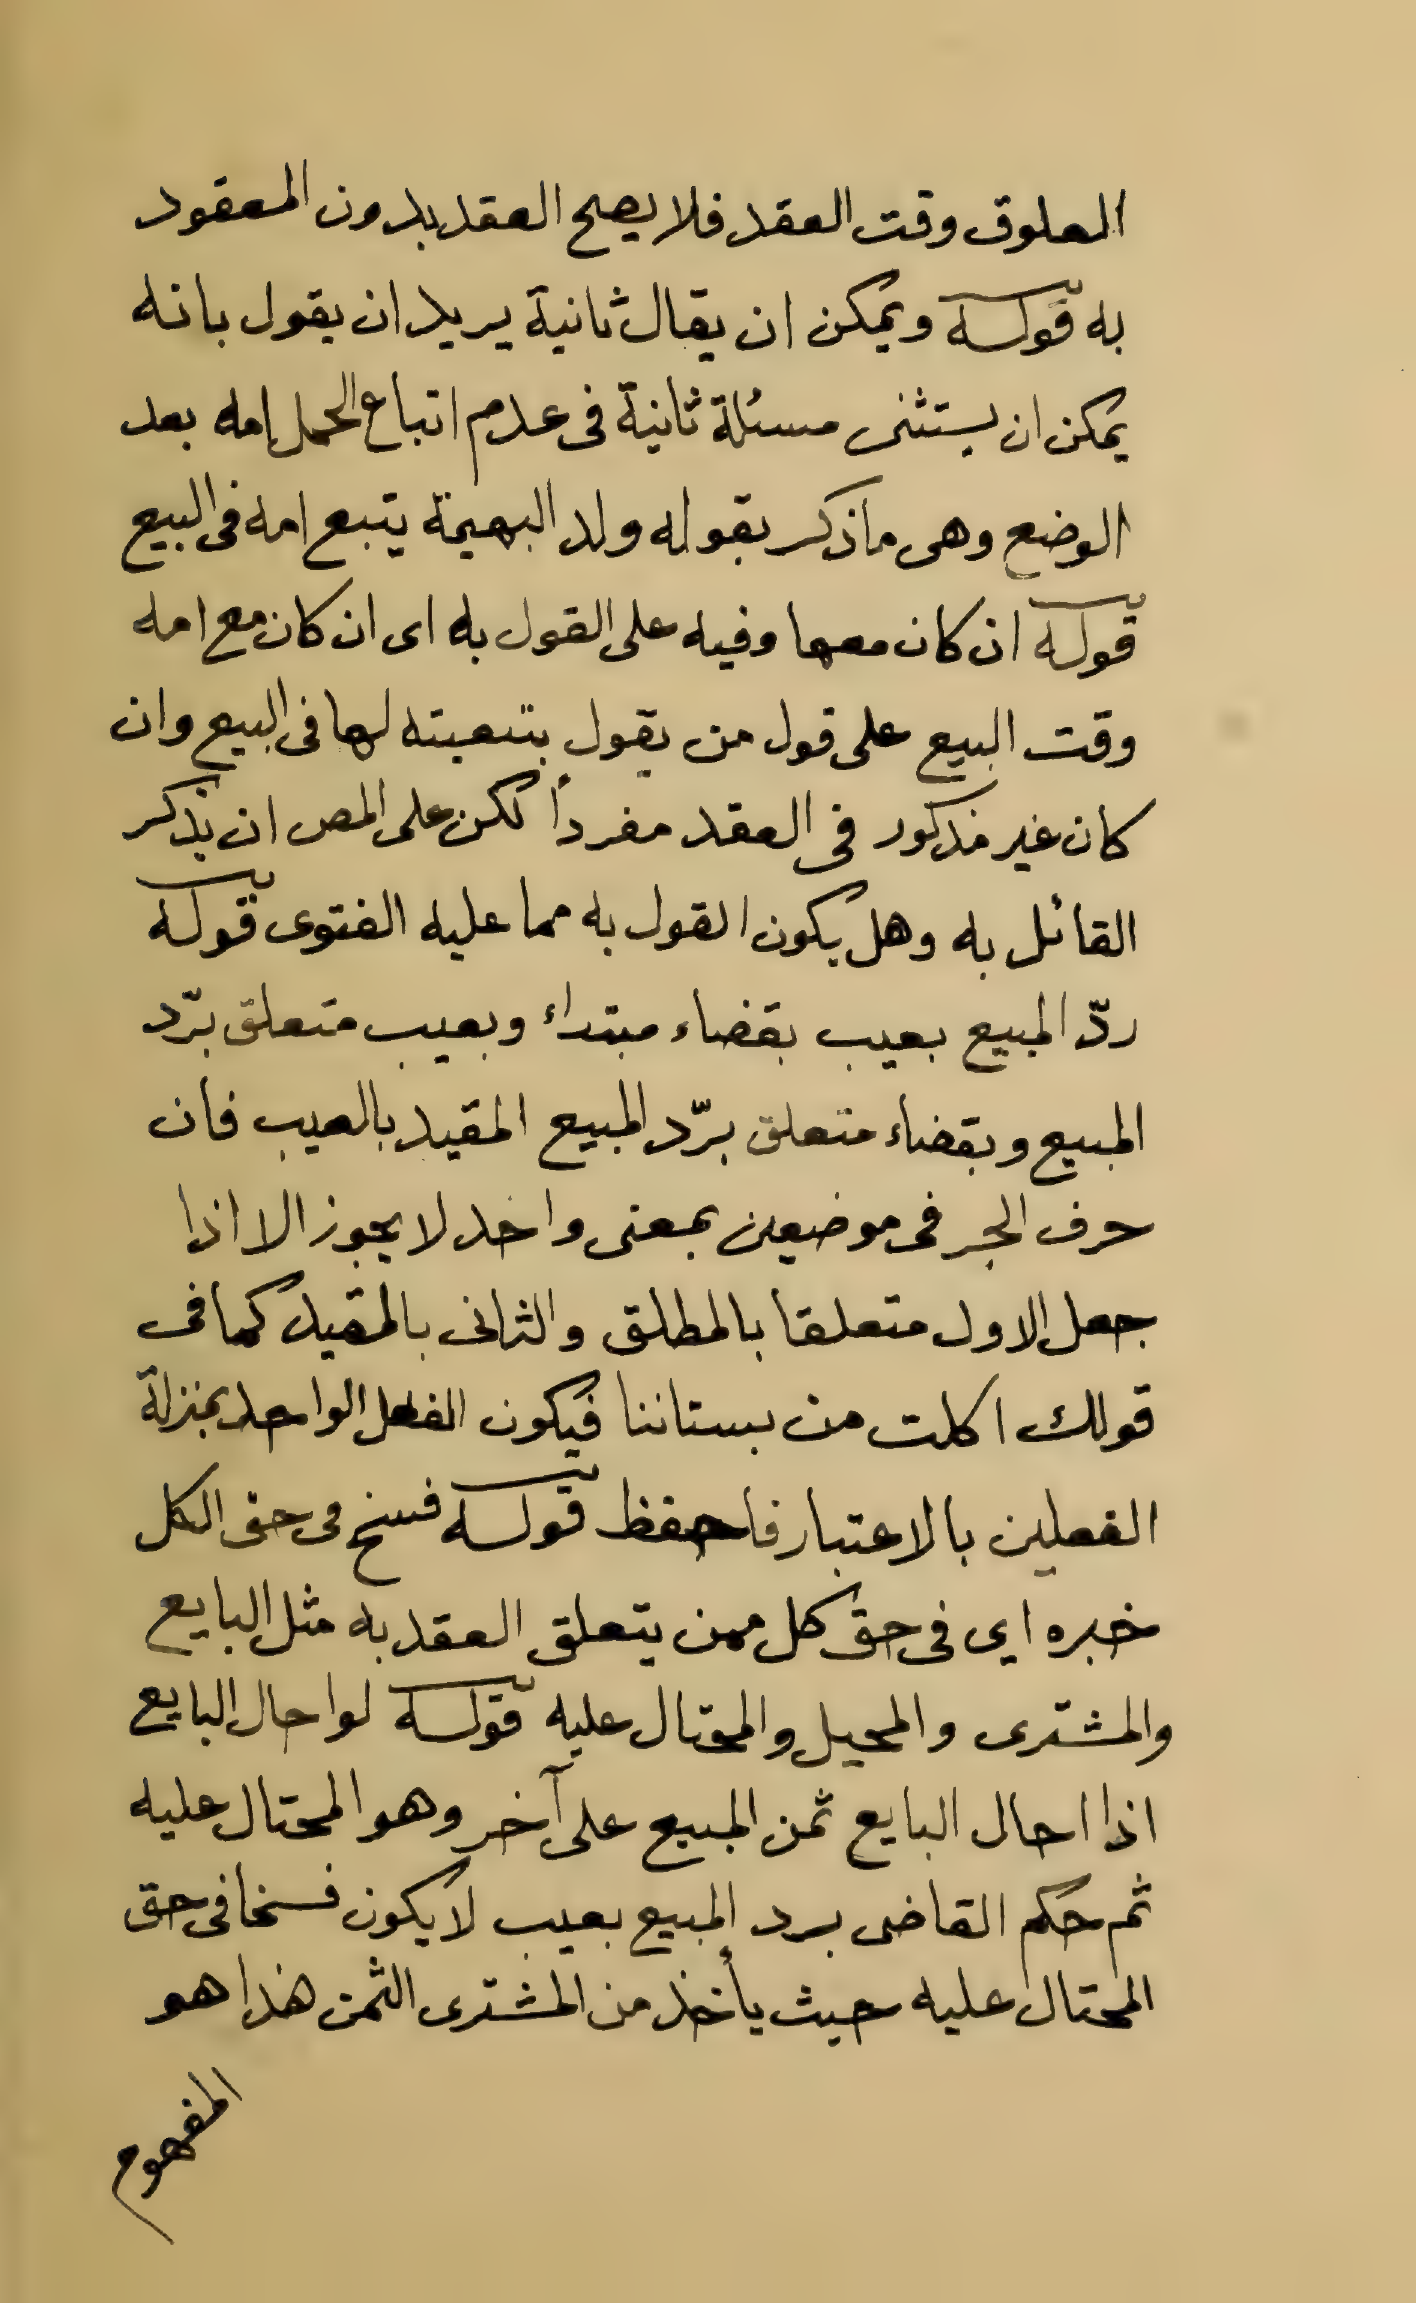 العلوق وقت العقد فلا يصح العقد بدون المعقود
به قوله ويمكن ان يقال ثانية يريد ان يقول بانه
يمكن ان يستثنى مسئلة ثانية فى عدم اتباع الحمل امه بعد
الوضع وهى ما ذكر بقوله ولد البهيمة يتبع امه فى البيع
قوله ان كان معها وفيه على القول به اى ان كان مع امه
وقت البيع على قول من يقول بتبعيته لها فى البيع وان
كان غير مذكور فى العقد مفرداً لكن على المص ان يذكر
القائل به وهل يكون القول به مما عليه الفتوى قوله
ردّ المبيع بعيب بقضاء مبتداء وبعيب متعلق بردّ
المبيع وبقضاء متعلق بردّ المبيع المقيد بالعيب فان
حرف الجر فى موضعين بمعنى واحد لا يجوز الا اذا
جعل الاول متعلقا بالمطلق والثانى بالمقيد كما فى
قولك اكلت من بستاننا فيكون الفعل الواحد بمنزلة
الفعلين بالاعتبار فاحفظ قوله فسخ فى حق الكل
خبره اى فى حق كل ممن يتعلق العقد به مثل البايع
والمشترى والمحيل والمحتال عليه قوله لو احال البايع
اذا احال البايع ثمن المبيع على آخر وهو المحتال عليه
ثم حكم القاضى برد المبيع بعيب لا يكون فسخا فى حق
المحتال عليه حيث يأخذ من المشترى الثمن هذا هو
المفهوم